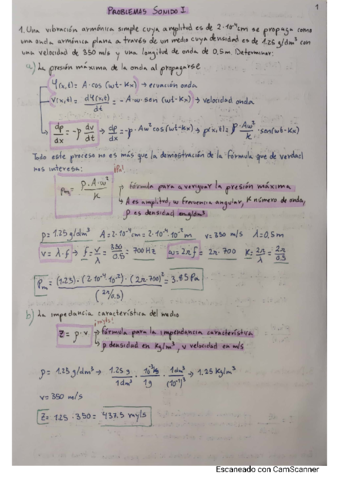 1
PROBLEMAS SONIDO I
1. Una vibración armónica simple cuya amplitud es de 2·10⁻⁴ cm se propaga como
una onda armónica plana a través de un medio cuya densidad es de 1.25 g/dm³ con
una velocidad de 350 m/s y una longitud de onda de 0,5m. Determinar:
a) La presión máxima de la onda al propagarse
Ψ(x,t) = A·cos(wt-Kx) → ecuación onda
v(x,t) = dΨ(x,t)/dt = -A·w·sen(wt-Kx) → velocidad onda
dp/dx = -ρ dv/dt → dp/dx = -ρ·Aw²cos(wt-Kx) → p(x,t) =
Todo este proceso no es más que la demostración de la fórmula que de verdad
nos interesa:
Pm = ρ·A·w²/K
fórmula para averiguar la presión máxima
A es amplitud, w frecuencia angular, K número de onda,
ρ es densidad
ρ = 1.25 g/dm³ A = 2·10⁻⁴cm = 2·10⁻⁴·10⁻²m v = 350 m/s λ = 0,5m
v = λ·f → f = v/λ = 350/0.5 = 700Hz w = 2πf = 2π·700 K = 2π/λ = 2π/0.5
Pm = (1.25)·(2·10⁻⁴·10⁻²)·(2π·700)²/(2π/0.5) = 3.85Pa
b) La impedancia característica del medio
Z = ρ·v → fórmula para la impedancia característica
ρ densidad en Kg/m³, v velocidad en m/s
ρ = 1.25 g/dm³ → 1.25 Kg/m³
v = 350 m/s
Z = 1.25·350 = 437.5
Escaneado con CamScanner